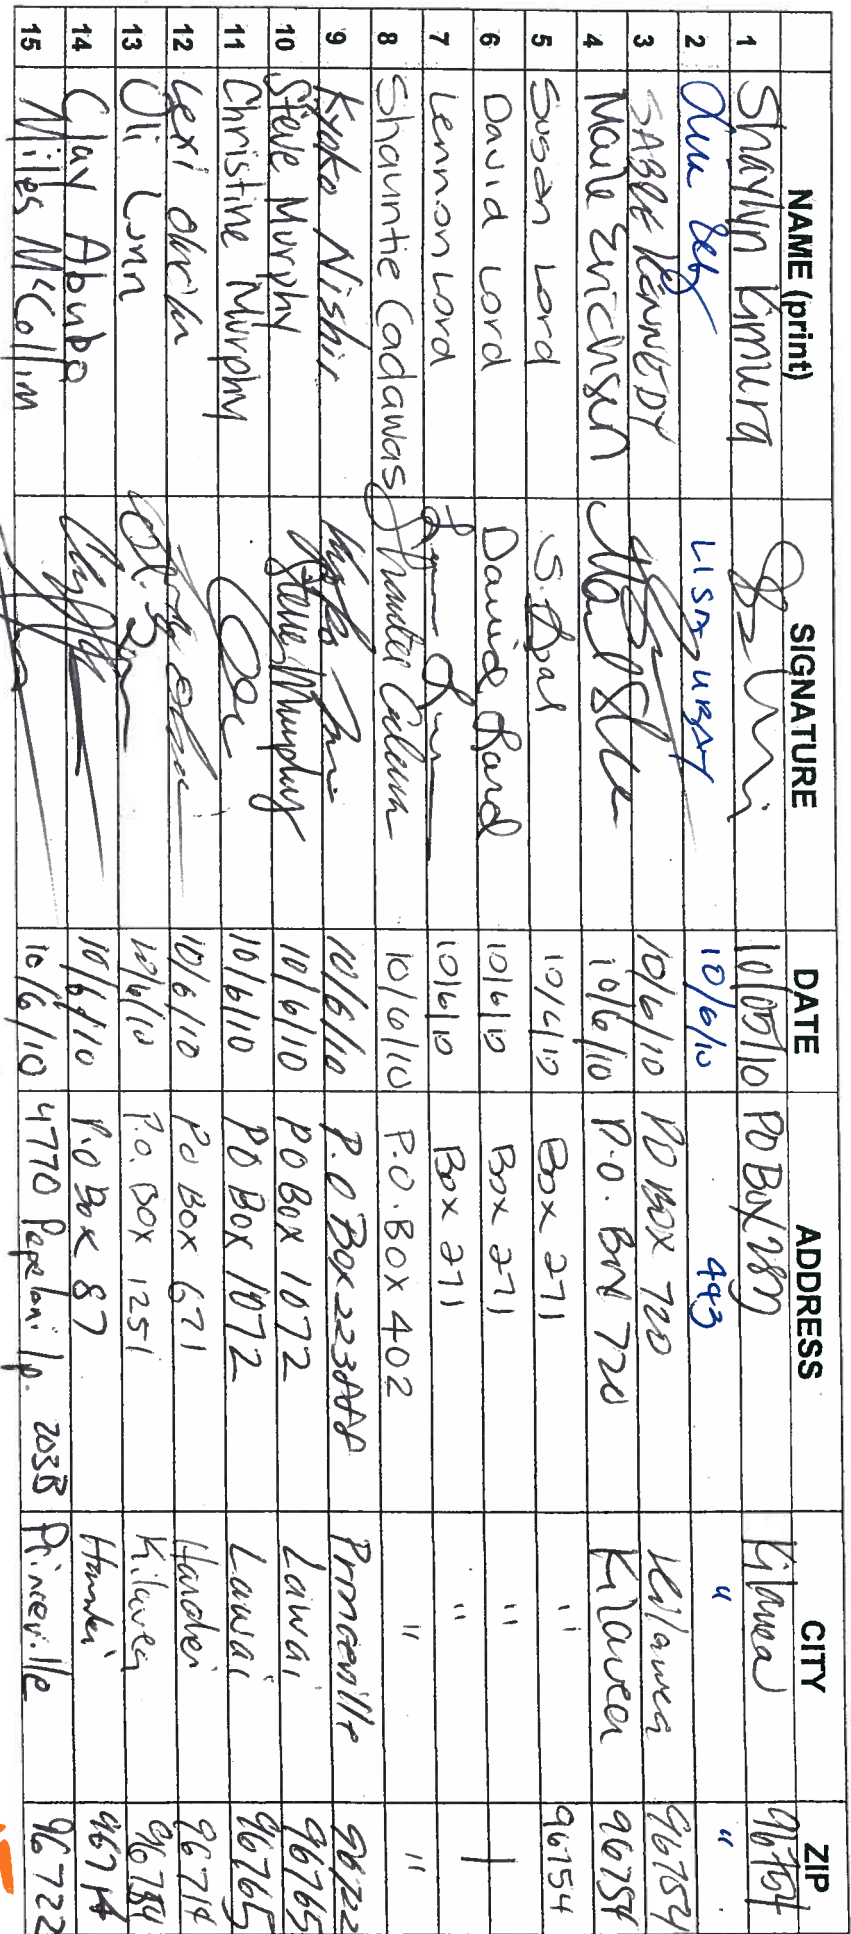 NAME (print) SIGNATURE DATE ADDRESS CITY ZIP
1 Shaylyn Kimura 10/05/10 PO Box Kilauea 96754
2 LISA URBAT 10/6/10 443 " "
3 KENNEDY 10/6/10 PO BOX 720 Kilauea 96754
4 Maile Erichsen 10/6/10 P.O. Box 720 Kilauea 96754
5 Susan Lord 10/6/10 Box 271 " 96754
6 David Lord David Lord 10/6/10 Box 271 "
7 Lennon Lord 10/6/10 Box 271 "
8 Shauntie Cadawas 10/6/10 P.O. BOX 402 " "
9 Kyoko Nishii 10/6/10 P.O Box 223 Princeville 96722
10 Steve Murphy Steve Murphy 10/6/10 PO BOX 1072 Lawai 96765
11 Christine Murphy 10/6/10 PO BOX 1072 Lawai 96765
12 Lexi 10/6/10 PO Box 671 Hanalei 96714
13 Oli 10/6/10 P.O. BOX 1251 Kilauea 96754
14 Clay Abubo 10/6/10 P.O Box 87 Hanalei 96714
15 Miles McCollim 10/6/10 4770 Pepelani lp. 203B Princeville 96722